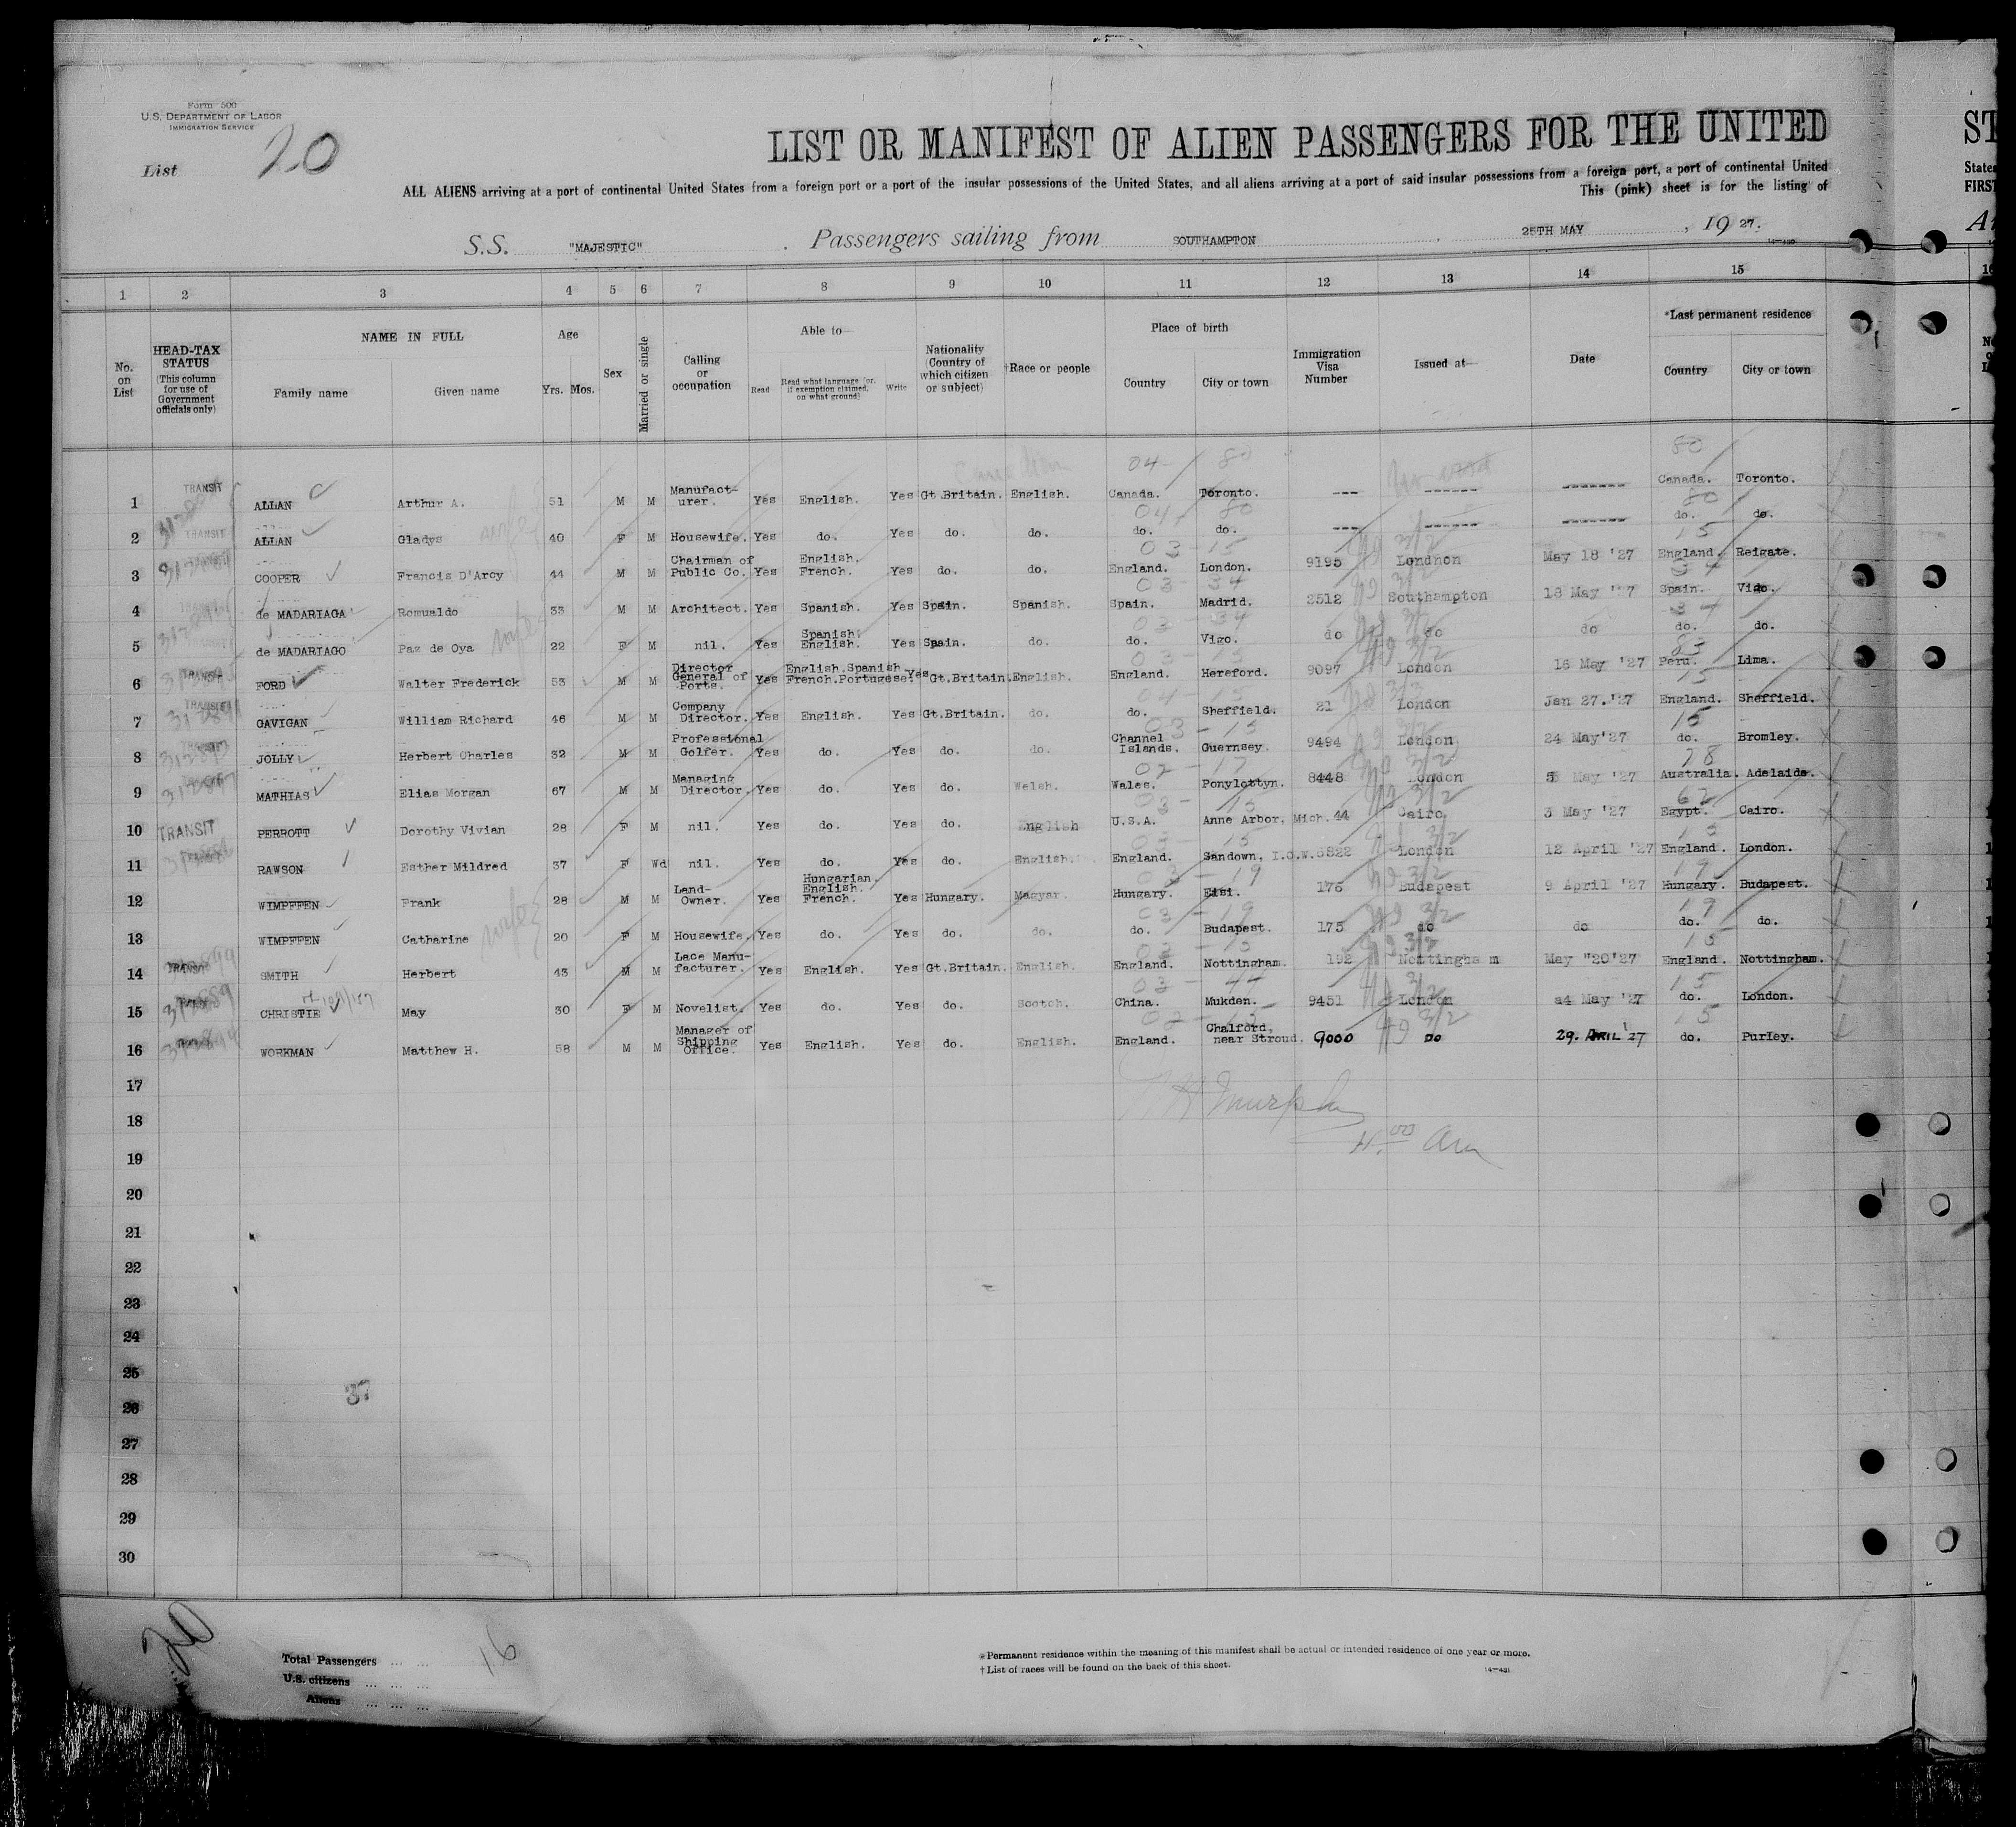 Form 500
U.S. DEPARTMENT OF LABOR
IMMIGRATION SERVICE
List 20
LIST OR MANIFEST OF ALIEN PASSENGERS FOR THE UNITED
ALL ALIENS arriving at a port of continental United States from a foreign port or a port of the insular possessions of the United States, and all aliens arriving at a port of said insular possessions from a foreign port, a port of continental United
This (pink) sheet is for the listing of
S.S. "MAJESTIC" . Passengers sailing from SOUTHAMPTON , 25TH MAY , 19 27.
1 2 3 4 5 6 7 8 9 10 11 12 13 14 15
No. on List
HEAD-TAX STATUS (This column for use of Government officials only)
NAME IN FULL Family name Given name
Age Yrs. Mos.
Sex
Married or single
Calling or occupation
Able to— Read Read what language (or, if exemption claimed, on what ground) Write
Nationality (Country of which citizen or subject)
†Race or people
Place of birth Country City or town
Immigration Visa Number
Issued at—
Date
*Last permanent residence Country City or town
1 TRANSIT ALLAN Arthur A. 51 M M Manufact-urer. Yes English. Yes Gt.Britain. English. Canada. Toronto. --- ------ ------- Canada. Toronto.
2 TRANSIT ALLAN Gladys 40 F M Housewife. Yes do. Yes do. do. do. do. --- ------ ------- do. do.
3 COOPER Francis D'Arcy 44 M M Chairman of Public Co. Yes English. French. Yes do. do. England. London. 9195 Londnon May 18 '27 England. Reigate.
4 de MADARIAGA Romualdo 33 M M Architect. Yes Spanish. Yes Spain. Spanish. Spain. Madrid. 2512 Southampton 18 May '27 Spain. Vigo.
5 de MADARIAGO Paz de Oya 22 F M nil. Yes Spanish. English. Yes Spain. do. do. Vigo. do do do do. do.
6 TRANSIT FORD Walter Frederick 53 M M Director General of Ports. Yes English.Spanish French.Portugese. Yes Gt.Britain. English. England. Hereford. 9097 London 16 May '27 Peru. Lima.
7 TRANSIT GAVIGAN William Richard 46 M M Company Director. Yes English. Yes Gt.Britain. do. do. Sheffield. 21 London Jan 27.'27 England. Sheffield.
8 JOLLY Herbert Charles 32 M M Professional Golfer. Yes do. Yes do. do. Channel Islands. Guernsey. 9494 London 24 May'27 do. Bromley.
9 MATHIAS Elias Morgan 67 M M Managing Director. Yes do. Yes do. Welsh. Wales. Ponylottyn. 8448 London 5 May '27 Australia. Adelaide.
10 TRANSIT PERROTT Dorothy Vivian 28 F M nil. Yes do. Yes do. English U.S.A. Anne Arbor, Mich. 44 Cairo 3 May '27 Egypt. Cairo.
11 RAWSON Esther Mildred 37 F Wd nil. Yes do. Yes do. English. England. Sandown, I.O.W. 6822 London 12 April '27 England. London.
12 WIMPFFEN Frank 28 M M Land-Owner. Yes Hungarian. English. French. Yes Hungary. Magyar. Hungary. Ersi. 176 Budapest 9 April '27 Hungary. Budapest.
13 WIMPFFEN Catharine 20 F M Housewife. Yes do. Yes do. do. do. Budapest. 175 do do do. do.
14 TRANSIT SMITH Herbert 43 M M Lace Manu-facturer. Yes English. Yes Gt.Britain. English. England. Nottingham. 192 Nottingham May "20'27 England. Nottingham.
15 CHRISTIE May 30 F M Novelist. Yes do. Yes do. Scotch. China. Mukden. 9451 London 24 May '27 do. London.
16 WORKMAN Matthew H. 58 M M Manager of Shipping Office. Yes English. Yes do. English. England. Chalford, near Stroud. 9000 do 29. APRIL '27 do. Purley.
17
18
19
20
21
22
23
24
25
26
27
28
29
30
37
20
Total Passengers ... ... 16
U.S. citizens ... ... ...
Aliens ... ... ...
*Permanent residence within the meaning of this manifest shall be actual or intended residence of one year or more.
†List of races will be found on the back of this sheet.
14—431
ST
States
FIRST